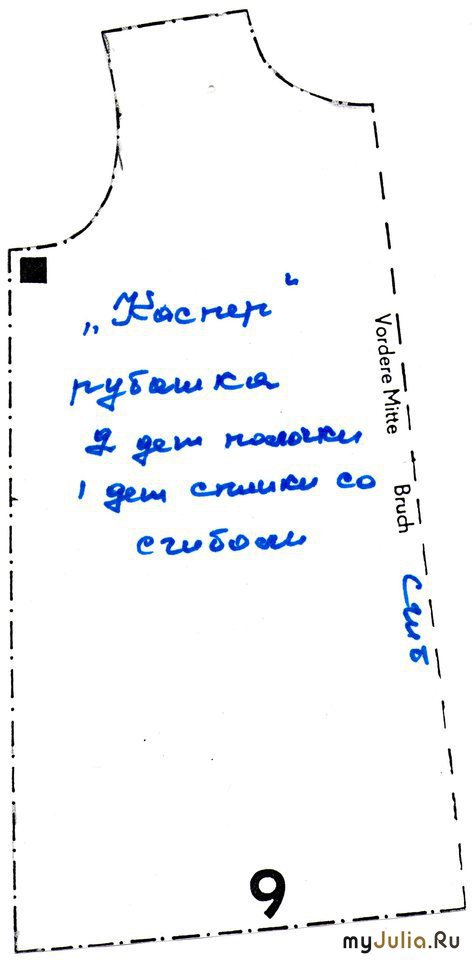 „Каспер"
рубашка
2 дет полочки
1 дет спинки со
сгибом
Vordere Mitte
Bruch
сгиб
9
myJulia.Ru